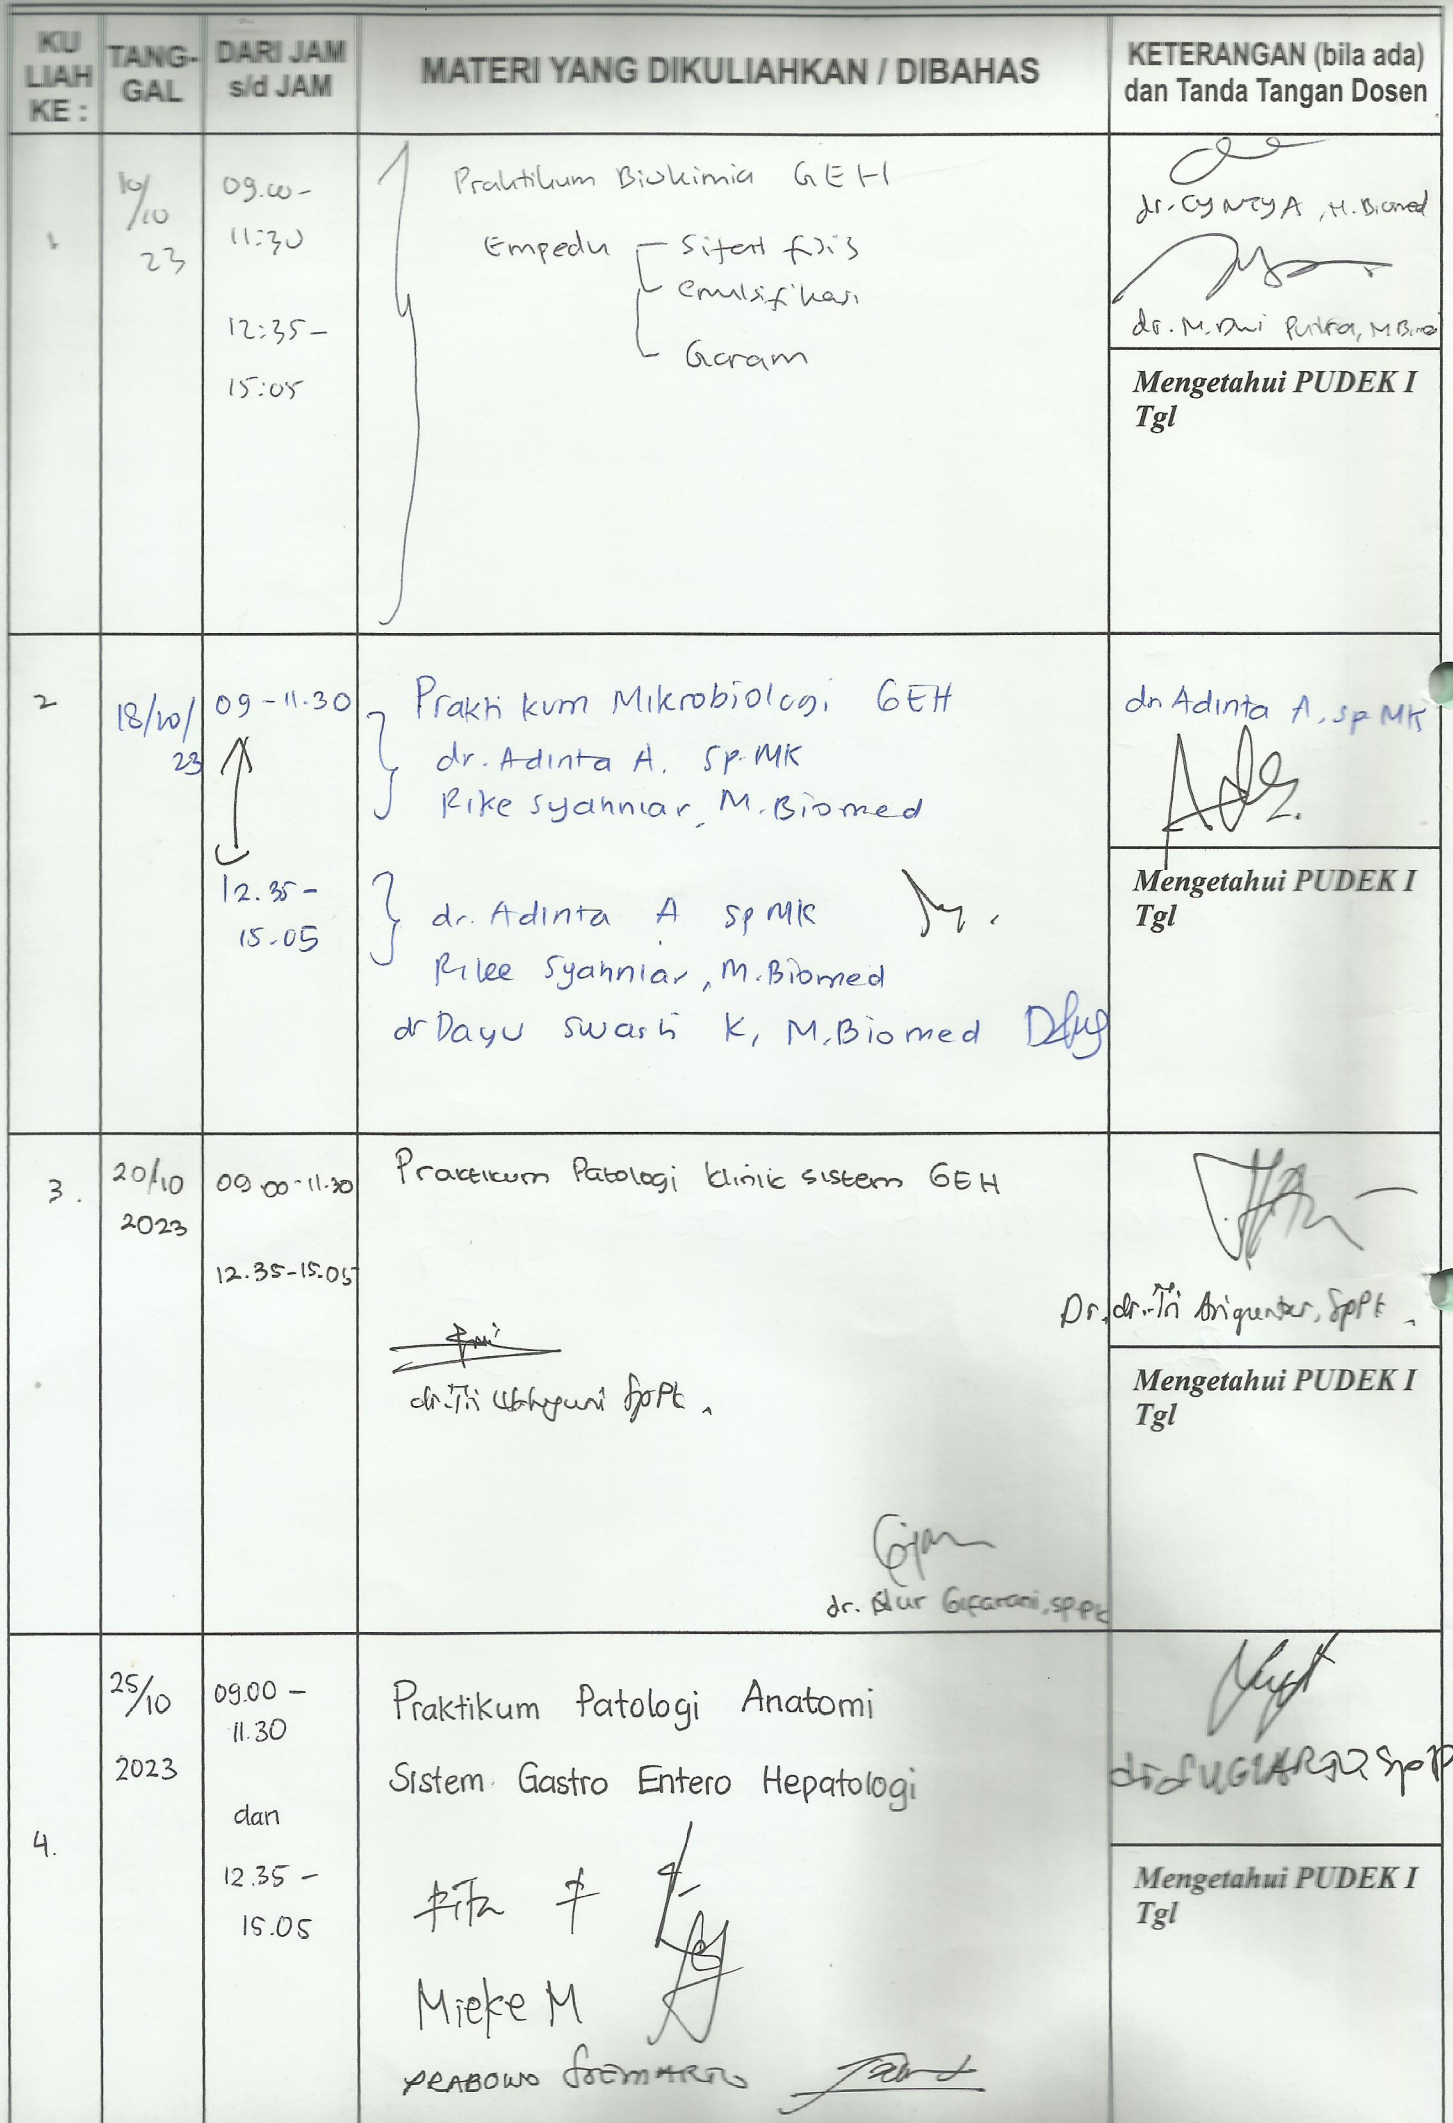 KU LIAH KE :
TANG- GAL
DARI JAM s/d JAM
MATERI YANG DIKULIAHKAN / DIBAHAS
KETERANGAN (bila ada) dan Tanda Tangan Dosen
1
10/10
23
09.00 -
11:30
12:35 -
15:05
Praktikum Biokimia GEH
Empedu
Sifat fisis
emulsifikasi
Garam
dr. CYNTYA, M. Biomed
dr. M. Dwi Putra, M Biomed
Mengetahui PUDEK I
Tgl
2
18/10/
23
09 - 11.30
12.35 -
15.05
Praktikum Mikrobiologi GEH
dr. Adinta A. Sp.MK
Rike Syahniar, M.Biomed
dr. Adinta A SpMK
Rike Syahniar, M.Biomed
dr Dayu Swasti K, M.Biomed
dr Adinta A, Sp MK
Mengetahui PUDEK I
Tgl
3.
20/10
2023
09.00-11.30
12.35-15.05
Praktikum Patologi klinik sistem GEH
dr. Tri SpPK.
dr. Nur Gifarani, Sp.PK
Dr. dr. Tri SpPK.
Mengetahui PUDEK I
Tgl
4.
25/10
2023
09.00 -
11.30
dan
12.35 -
15.05
Praktikum Patologi Anatomi
Sistem Gastro Entero Hepatologi
Mieke M
PRABOWO SOEMARTO
dr SUGIARTO, Sp
Mengetahui PUDEK I
Tgl